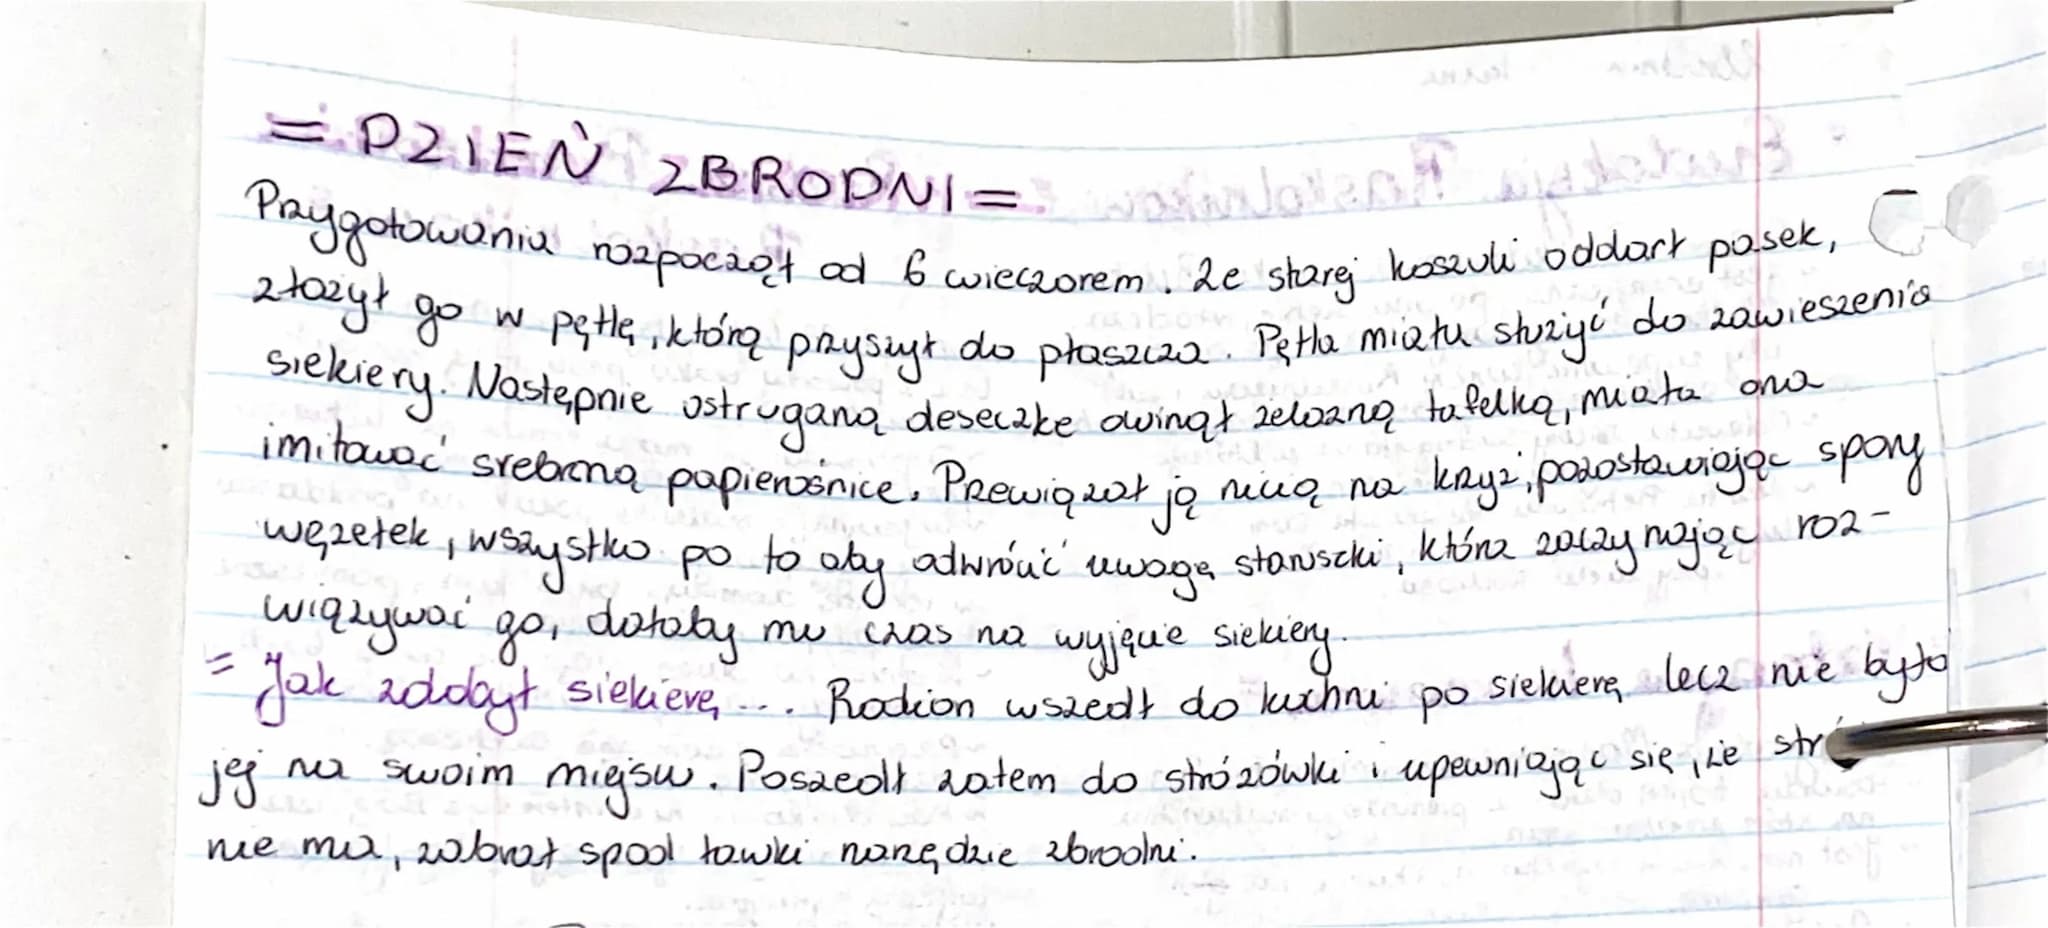 = DZIEŃ ZBRODNI =
Przygotowania rozpoczął od 6 wieczorem. Ze starej koszuli oddarł pasek,
złożył go w pętlę, którą przyszył do płaszcza. Pętla miała służyć do zawieszenia
siekiery. Następnie ostruganą deseczkę owinął żelazną tafelką, miała ona
imitować srebrną papierośnice. Przewiązał ją nicią na krzyż, pozostawiając spory
węzełek, wszystko po to aby odwrócić uwagę staruszki, która zaczynając roz-
wiązywać go, dałaby mu czas na wyjęcie siekiery.
= Jak zdobył siekierę... Rodion wszedł do kuchni po siekierę lecz nie było
jej na swoim miejscu. Poszedł zatem do stróżówki i upewniając się, że
nie ma, zabrał spod ławki narzędzie zbrodni.